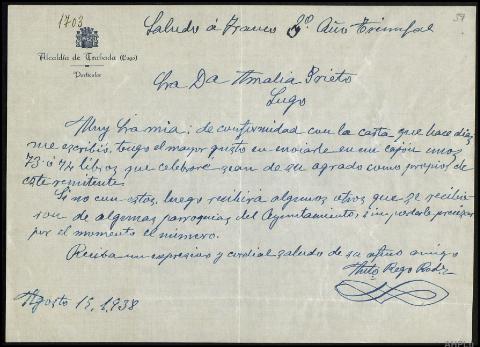 1703
59
Saludo á Franco 2º Año Triunfal
Alcaldía de Trabada (Lugo)
Particular
Sra Da Amalia Prieto
Lugo
Muy Sra mia: de conformidad con la carta que hace dias
me escribió, tengo el mayor gusto en enviarle en un cajón unos
73 ó 74 libros que celebraré sean de su agrado como propios de
este remitente.
Si no con estos, luego recibirá algunos otros que se recibie
ron de algunas parroquias del Ayuntamiento, sin poderle precisar
por el momento el número.
Reciba un expresivo y cordial saludo de su afmo amigo
Rego Rodz
Agosto 15, 1938